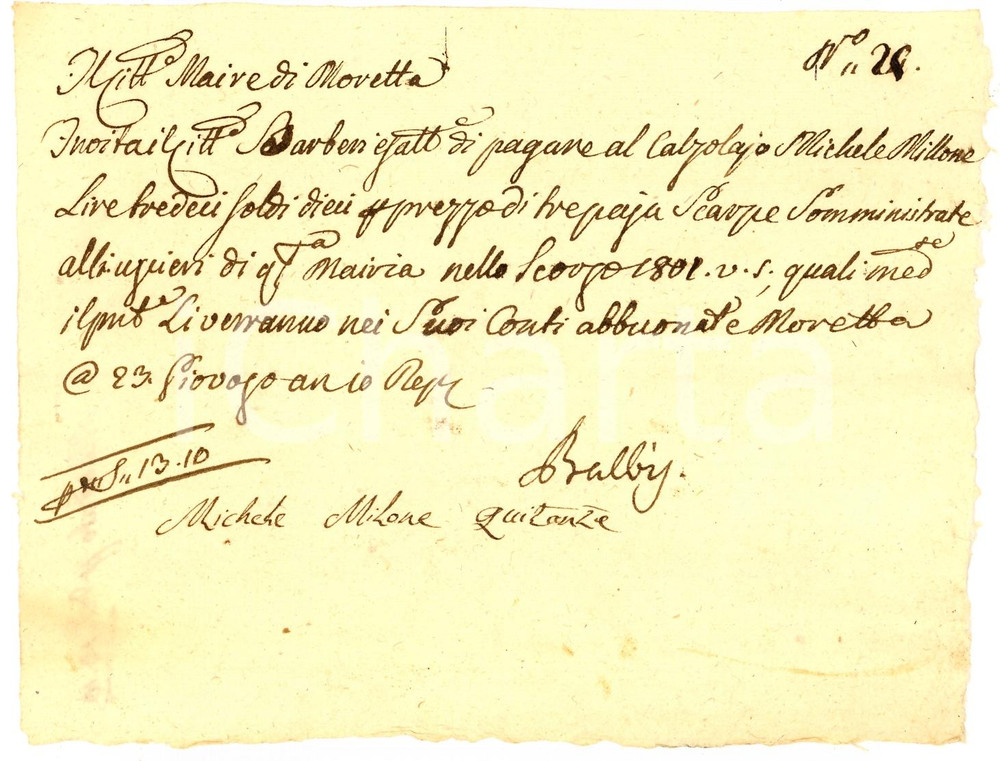 N.o 26.
Il Citt.o Maire di Moretta
Invita il Citt.o Barberi Esatt.e di pagare al Calzolajo Michele Millone
Lire tredeci soldi dieci prezzo di tre paja Scarpe Somministrate
alli uscieri di q.ta Mairia nello Scorso 1801. v. s., quali med.e
il pnte Li verranno nei Suoi Conti abbuonate Moretta
@ 23. Piovoso an 10 Rep.
13.10
Balbis.
Michele Milone quitanza
iCharta